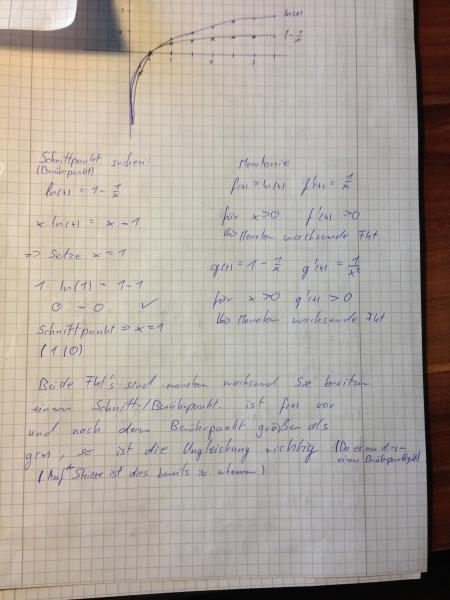 ln(x)
1 - 1/x
Schnittpunkt suchen
(Berührpunkt)
ln(x) = 1 - 1/x
x ln(x) = x - 1
=> Setze x = 1
1 · ln(1) = 1 - 1
0 = 0 ✓
Schnittpunkt => x = 1
(1|0)
Monotonie
f(x) = ln(x) f'(x) = 1/x
für x>0 f'(x) >0
Monoton wachsende Fkt
g(x) = 1 - 1/x g'(x) = 1/x²
für x >0 g'(x) > 0
Monoton wachsende Fkt
Beide Fkt's sind monoton wachsend Sie besitzen
einen Schnitt-/Berührpunkt. ist f(x) vor
und nach dem Berührpunkt größer als
g(x), so ist die Ungleichung richtig (Da es nur diesen
einen Berührpunkt gibt)
(Auf Skizze ist dies bereits zu erkennen)